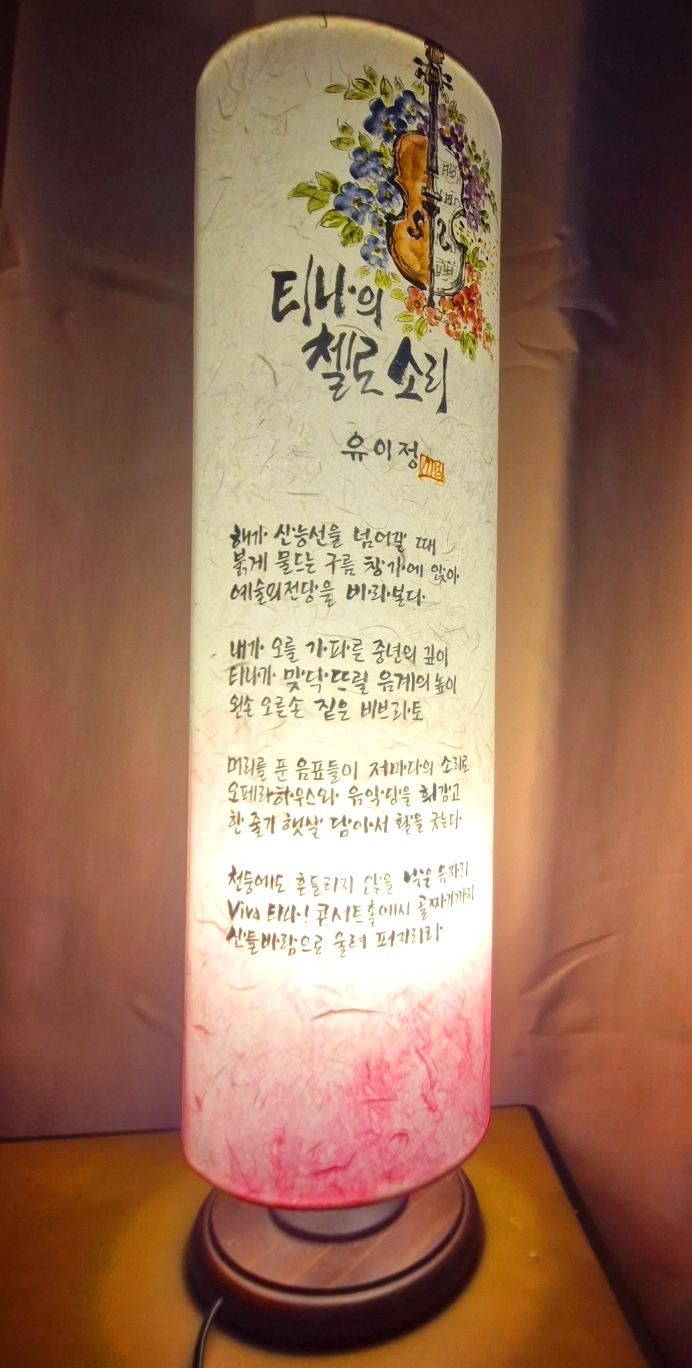 티나의
첼로 소리
유이정
해가 산능선을 넘어갈 때
붉게 물드는 구름 창가에 앉아
예술의전당을 바라본다
내가 오를 가파른 중년의 깊이
티나가 맞닥뜨릴 음계의 높이
왼손 오른손 짙은 비브라토
머리를 푼 음표들이 저마다의 소리로
오페라하우스와 음악당을 휘감고
한 줄기 햇살 담아서 활을 긋는다
천둥에도 흔들리지 않을 낙을
Viva 티나! 콘서트홀에서 골짜기까지
산들바람으로 울려 퍼지리라